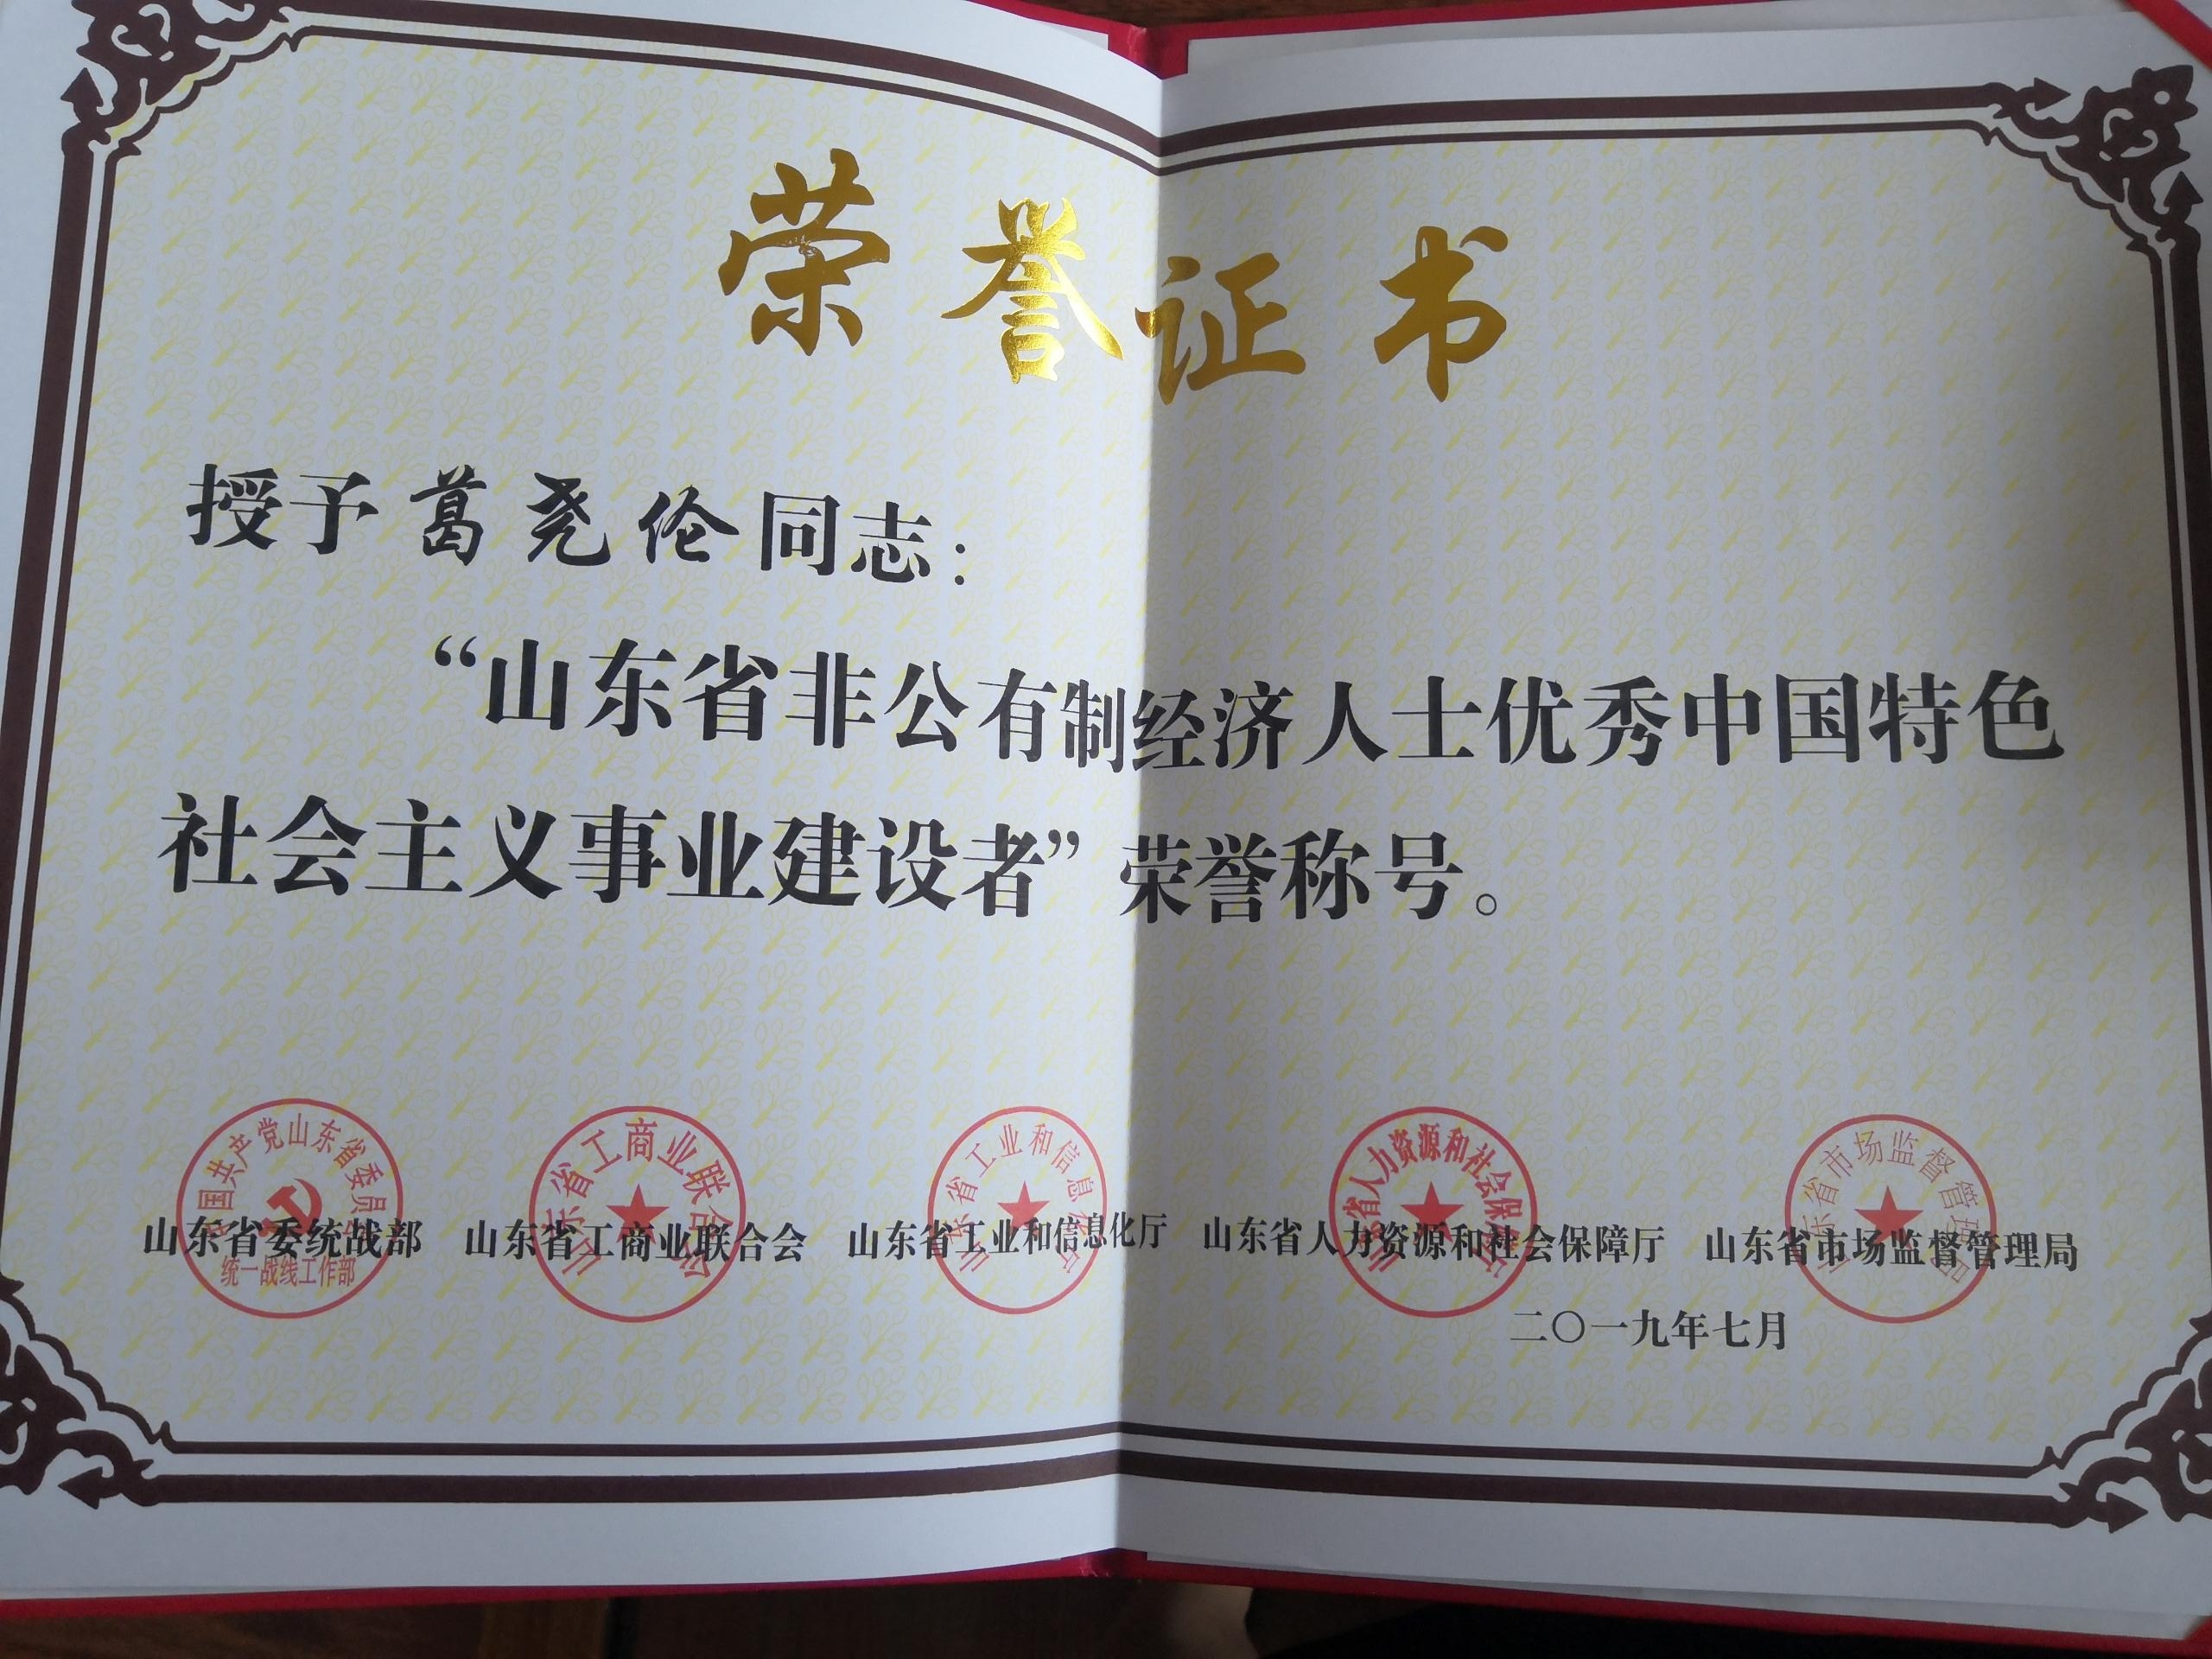 荣誉证书
授予葛尧伦同志：
“山东省非公有制经济人士优秀中国特色
社会主义事业建设者”荣誉称号。
中国共产党山东省委员会
统一战线工作部
山东省工商业联合会
山东省工业和信息化厅
山东省人力资源和社会保障厅
山东省市场监督管理局
山东省委统战部 山东省工商业联合会 山东省工业和信息化厅 山东省人力资源和社会保障厅 山东省市场监督管理局
二〇一九年七月